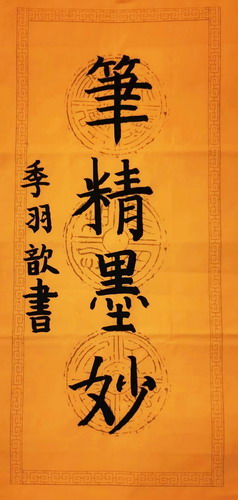 筆精墨妙
季羽歆書